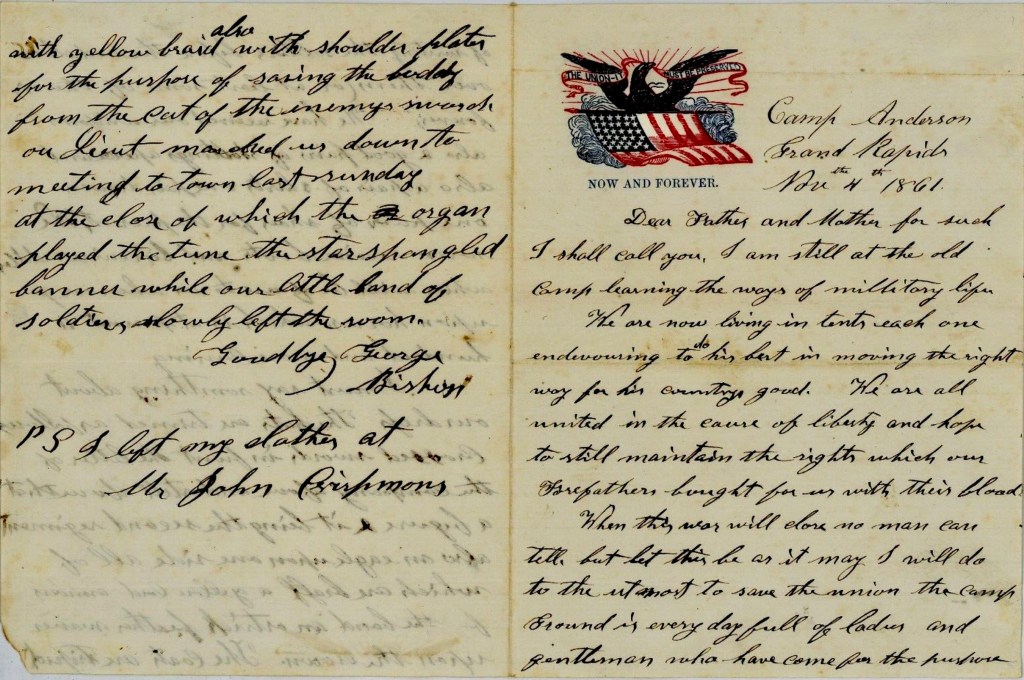 with yellow braid also with shoulder plates
for the purpose of saving the boddy
from the cut of the enemys sword.
ou Lieut marched us down to
meeting to town last sunday
at the close of which the organ
played the tune the star spangled
banner while our little band of
soldiers slowly left the room.
Goodbye George
Bishop
P S I left my clothes at
Mr John
THE UNION-IT MUST BE PRESERVED
NOW AND FOREVER.
Camp Anderson
Grand Rapids
Nov 4th 1861.
Dear Father and Mother for such
I shall call you. I am still at the old
camp learning the ways of millitary life
We are now living in tents each one
endevouring to do his best in moving the right
way for his countrys good. We are all
united in the cause of liberty and hope
to still maintain the rights which our
Forefathers bought for us with their blood.
When this war will close no man can
tell. but let this be as it may I will do
to the utmost to save the union the camp
Ground is every day full of ladies and
gentleman who have come for the purpose